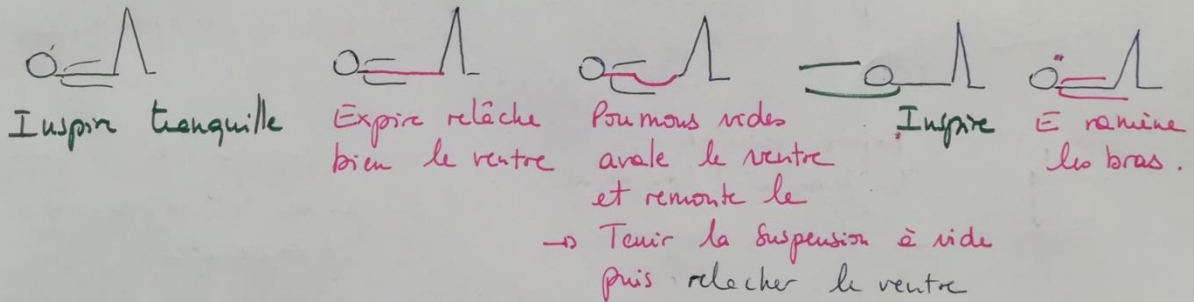 Inspire tranquille
Expire relâche
bien le ventre
Poumons vides
avale le ventre
et remonte le
→ Tenir la suspension à vide
puis relacher le ventre
Inspire
E ramène
les bras.